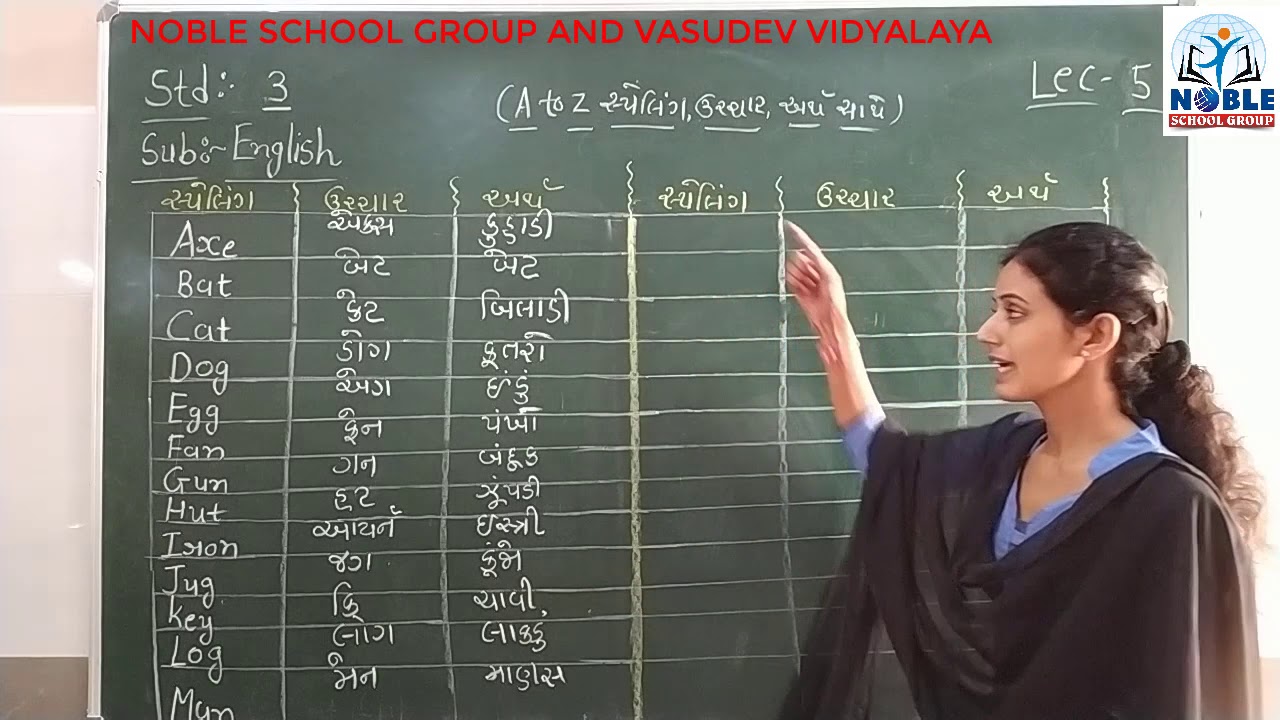 NOBLE SCHOOL GROUP AND VASUDEV VIDYALAYA
NOBLE
SCHOOL GROUP
Std:- 3
(A to Z સ્પેલિંગ, ઉચ્ચાર, અર્થ સાથે)
Lec- 5
Sub:- English
સ્પેલિંગ ઉચ્ચાર અર્થ સ્પેલિંગ ઉચ્ચાર અર્થ
Axe એક્સ કુહાડી
Bat બેટ બેટ
Cat કેટ બિલાડી
Dog ડોગ કૂતરો
Egg એગ ઈંડું
Fan ફેન પંખો
Gun ગન બંદૂક
Hut હટ ઝૂંપડી
Iron આયર્ન ઈસ્ત્રી
Jug જગ કૂંજો
Key કિ ચાવી
Log લોગ લાકડું
Man મેન માણસ